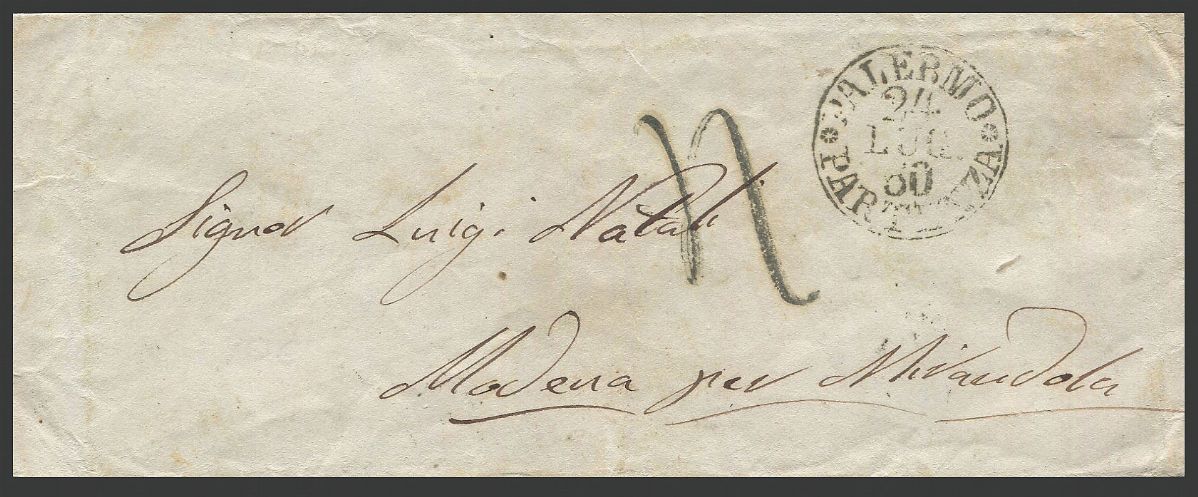 PALERMO
24
LUG.
60
PARTENZA
Signor Luigi Natali
Modena per Mirandola